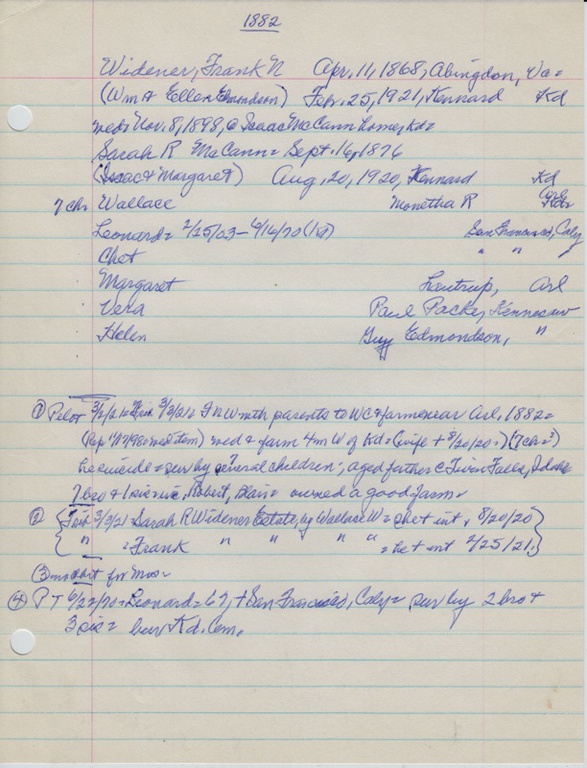 1882
Widener, Frank N Apr. 11, 1868, Abingdon, Va =
(Wm & Ellen Edmondson) Feb. 25, 1921, Kennard Kd
med = Nov. 8, 1898, @ Isaac McCann home, Kd =
Sarah R McCann = Sept. 16, 1876
(Isaac & Margaret) Aug. 20, 1920, Kennard Kd
7 chs Wallace Monetha R
Leonard = 2/25/03 - 6/16/70 (Kd) San Francisco, Caly
Chet " " "
Margaret Lautrup, Arl
Vera Paul Packer, Kennard
Helen Guy Edmondson, "
① Pilot 3/2/21 = 3/3/21 = F N W mth parents to WC & farm near Arl, 1882 =
med & farm 4m W of Kd = (wife + 8/20/20 =) (7 ch =)
suicide = sur by several children; aged father @ Twin Falls, Idaho
7 bro & 1 sis = Robert, Blair = owned a good farm =
② 3/9/21 Sarah R Widener Estate, by Wallace W = she + int, 8/20/20
" = Frank " " " " = he + int 2/25/21
③ no obit for Mrs =
④ P T 6/22/70 = Leonard = 67, + San Francisco, Caly = sur by 2 bro +
3 sis = bur Kd. Cem.